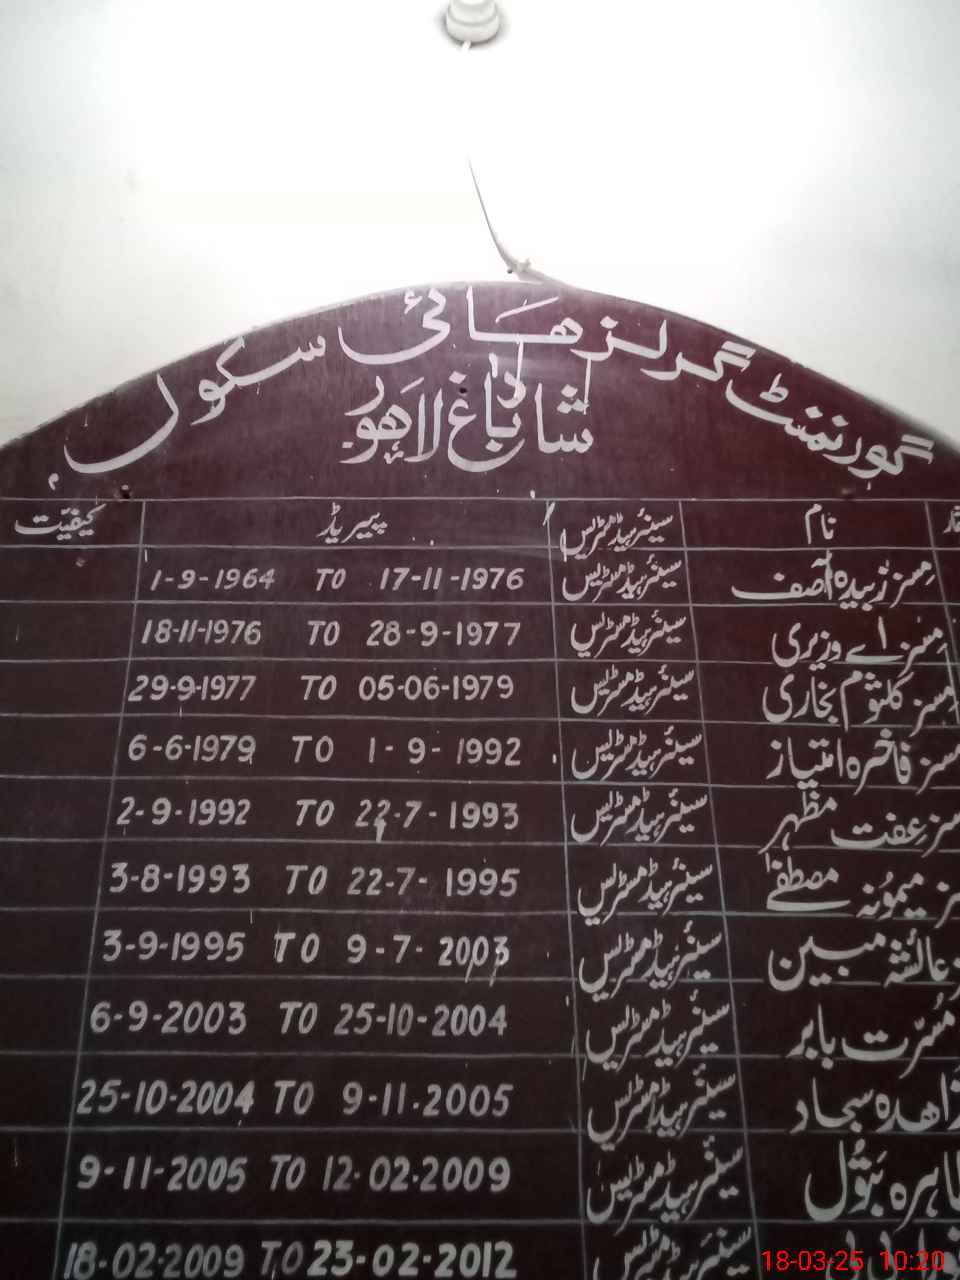 گورنمنٹ گرلز ھائی سکول
شادباغ لاہور
نام سینئر ہیڈمسٹریس پیریڈ کیفیّت
مسز زبیدہ آصف سینئر ہیڈمسٹریس 1-9-1964 TO 17-11-1976
مسز اے وزیری سینئر ہیڈمسٹریس 18-11-1976 TO 28-9-1977
مسز کلثوم بخاری سینئر ہیڈمسٹریس 29-9-1977 TO 05-06-1979
مسز فاخرہ امتیاز سینئر ہیڈمسٹریس 6-6-1979 TO 1-9-1992
مسز عفت مظہر سینئر ہیڈمسٹریس 2-9-1992 TO 22-7-1993
میمونہ مصطفےٰ سینئر ہیڈمسٹریس 3-8-1993 TO 22-7-1995
عائشہ مبین سینئر ہیڈمسٹریس 3-9-1995 TO 9-7-2003
مسرّت بابر سینئر ہیڈمسٹریس 6-9-2003 TO 25-10-2004
زاھدہ سجاد سینئر ہیڈمسٹریس 25-10-2004 TO 9-11-2005
طاہرہ بتول سینئر ہیڈمسٹریس 9-11-2005 TO 12-02-2009
سینئر ہیڈمسٹریس 18-02-2009 TO 23-02-2012
18-03-25 10:20